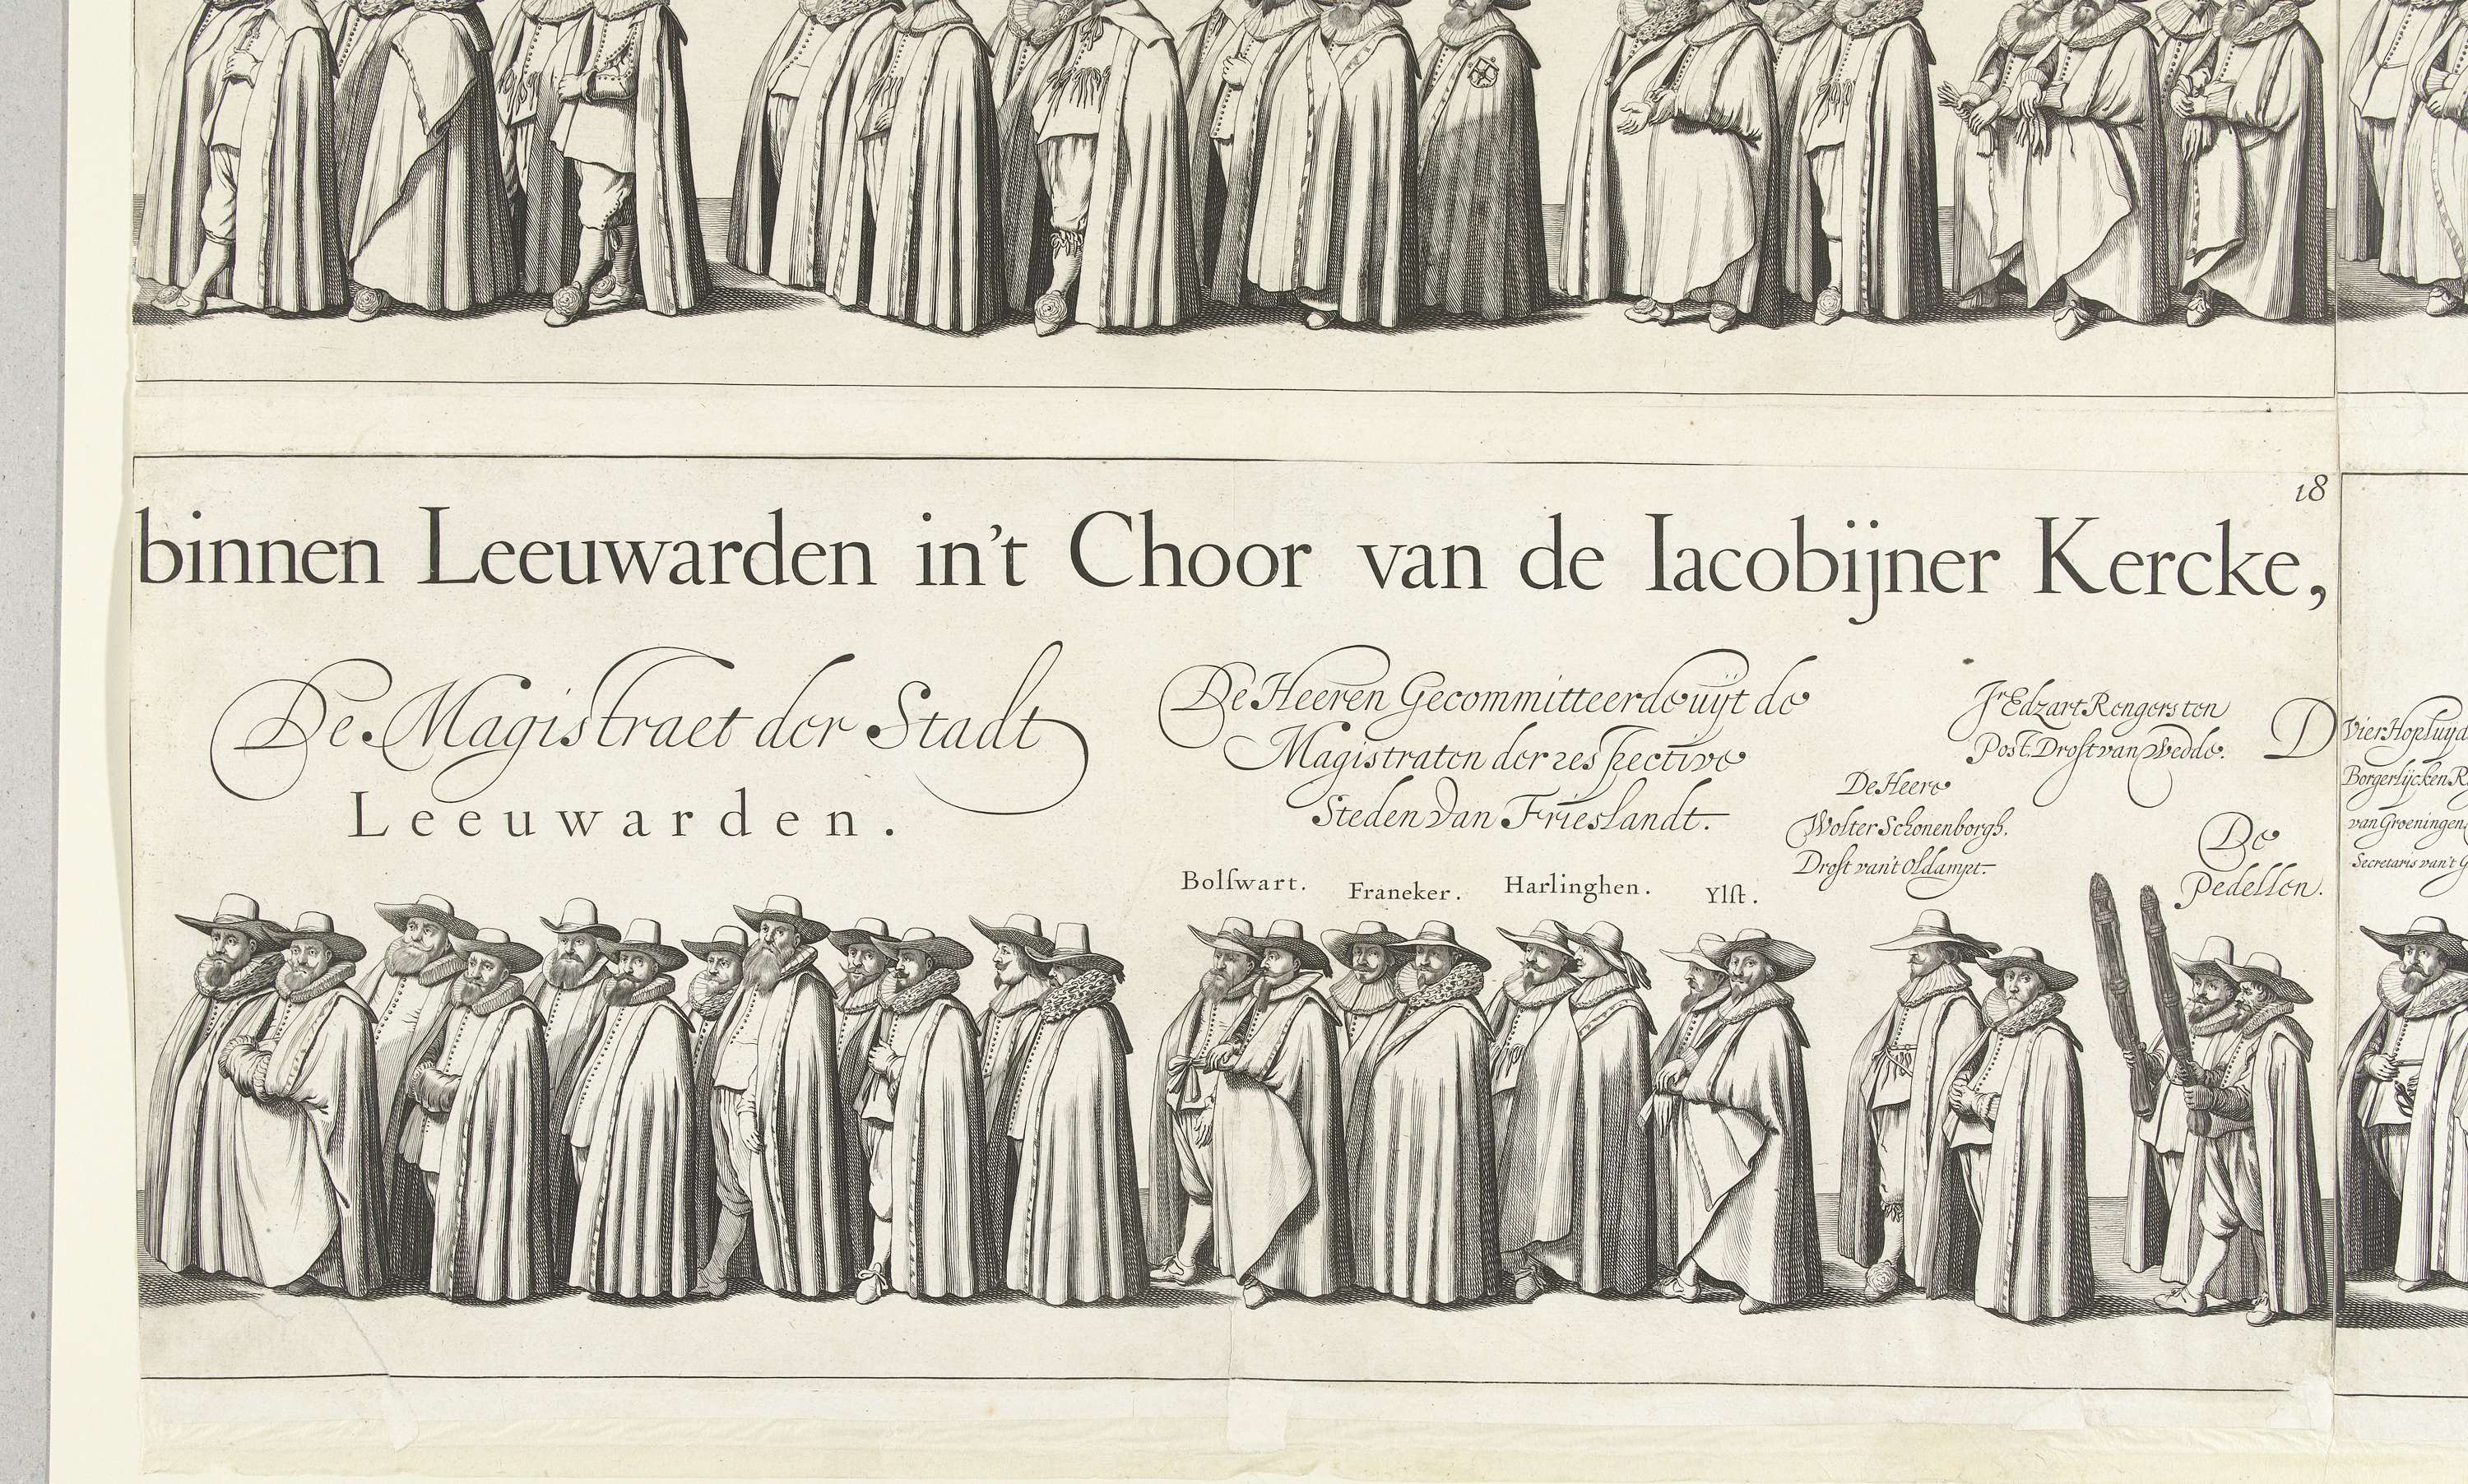 18
binnen Leeuwarden in't Choor van de Iacobijner Kercke,
De Magistraet der Stadt
Leeuwarden.
De Heeren Gecommitteerde uijt de
Magistraten der respective
Steden van Frieslandt.
Bolſwart.
Franeker.
Harlinghen.
Ylſt.
De Heere
Wolter Schonenborgh.
Droſt van't Oldampt.
Jr Edzart Rengers ten
Post. Droſt van Wedde.
De
Pedellen.
D
Vier Hopluyd
Borgerlijcken R
van Groeningen
Secretaris van't G